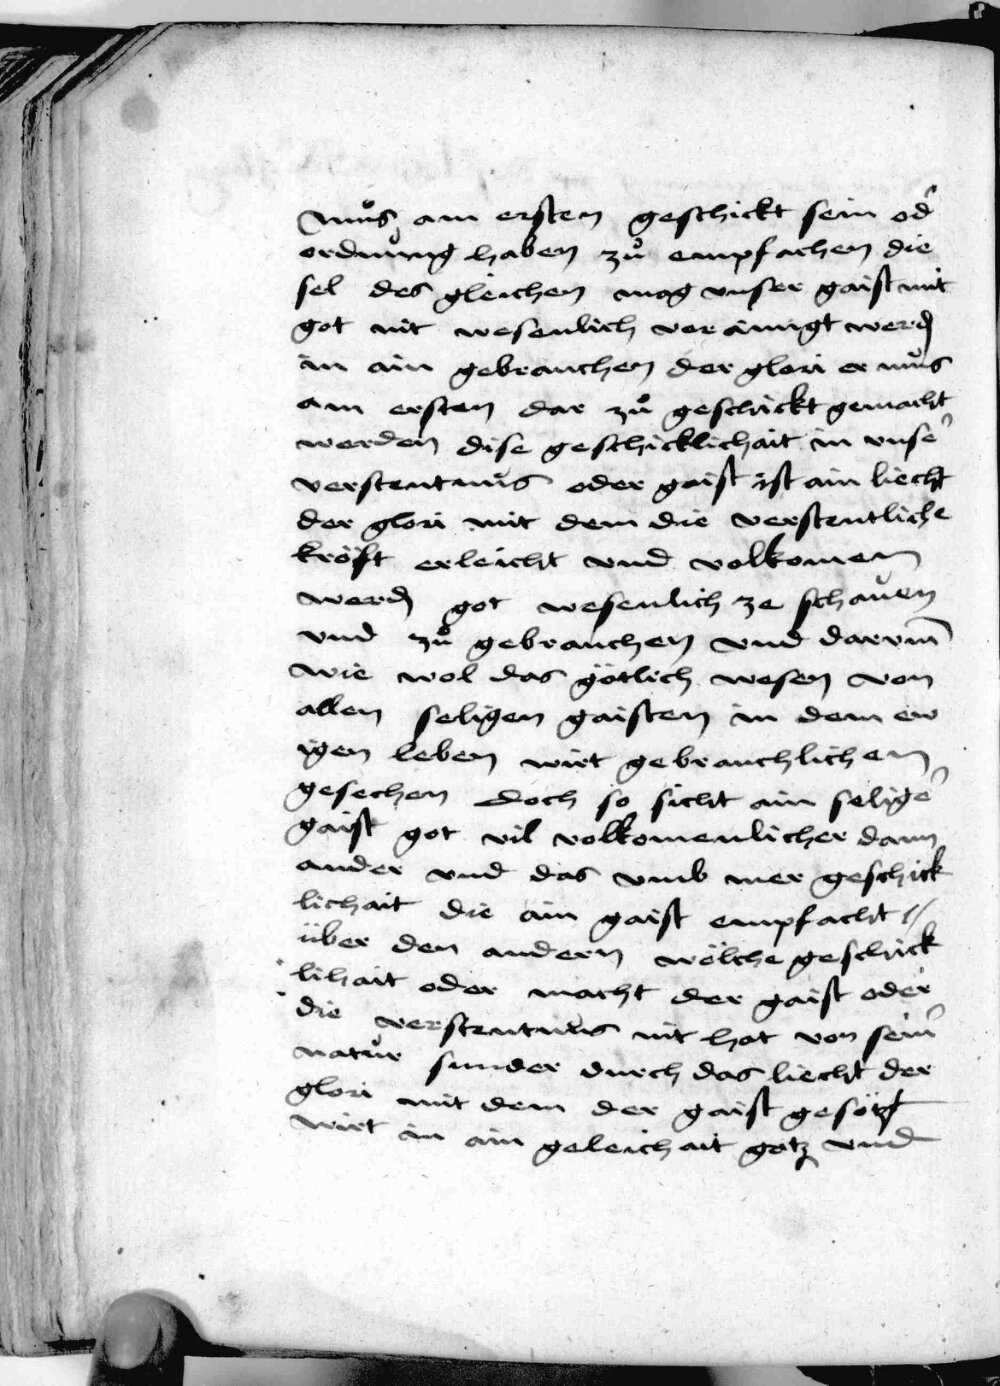 muͦs am ersten geschickt sein od̕
ordnung haben zuͦ empfachen die
sel des gleichen mag vnser gaist mit
got nit wesenlich verainigt werdn̄
in ain gebrauchen der glori er muͦs
am ersten dar zuͦ geschickt gemacht
werden dise geschicklichait in vnse̕
verstentnus oder gaist ist ain liecht
der glori mit dem die verstentliche
kröft erleicht vnd volkomen
werdn̄ got wesenlich ze schauen
vnd zuͦ gebrauchen vnd darvm̄
wie wol das götlich wesen von
allen seligen gaisten in dem ew
igen leben wirt gebrauchlichen
gesechen doch so sicht ain selige̕
gaist got vil volkomenlicher dann
ander vnd das vmb mer geschick
lichait die ain gaist empfacht //
über den andern wölche geschick
lihait oder macht der gaist oder
die verstentnus nit hat von sein̕
natur sunder durch das liecht der
glori mit dem der gaist gesötzt
wirt in ain geleichait gotz vnd